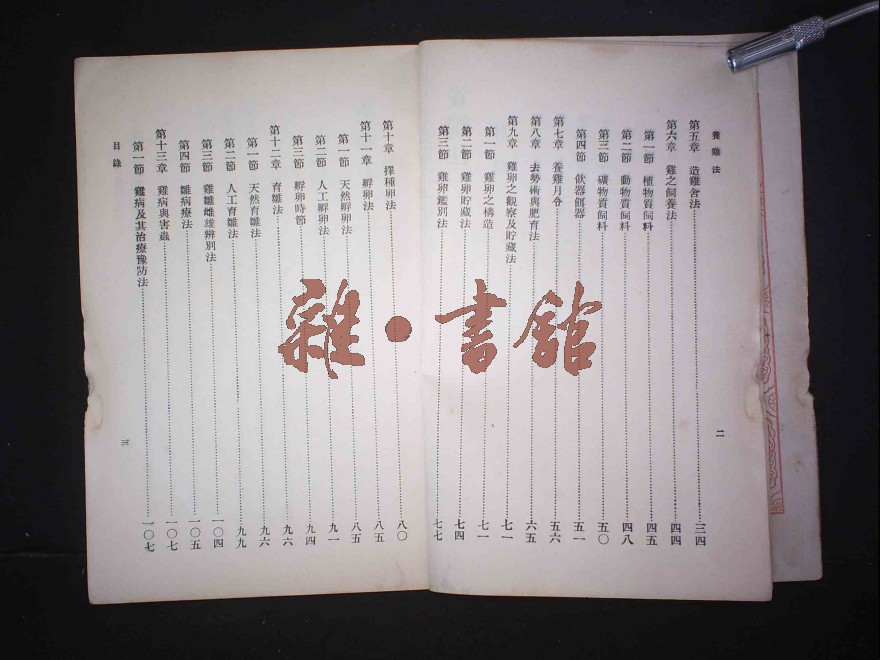 養雞法
第五章 造雞舍法 三四
第六章 雞之飼養法 四四
第一節 植物質飼料 四五
第二節 動物質飼料 四八
第三節 礦物質飼料 五〇
第四節 飲器餌器 五一
第七章 養雞月令 五六
第八章 去勢術與肥育法 六五
第九章 雞卵之觀察及貯藏法 七一
第一節 雞卵之構造 七一
第二節 雞卵貯藏法 七四
第三節 雞卵鑑別法 七七
二
第十章 擇種卵法 八〇
第十一章 孵卵法 八五
第一節 天然孵卵法 八五
第二節 人工孵卵法 九一
第三節 孵卵時節 九四
第十二章 育雛法 九六
第一節 天然育雛法 九六
第二節 人工育雛法 九九
第三節 雞雛雌雄辨別法 一〇四
第四節 雛病療法 一〇五
第十三章 雞病與害蟲 一〇七
第一節 雞病及其治療豫防法 一〇七
目錄
三
雜·書館